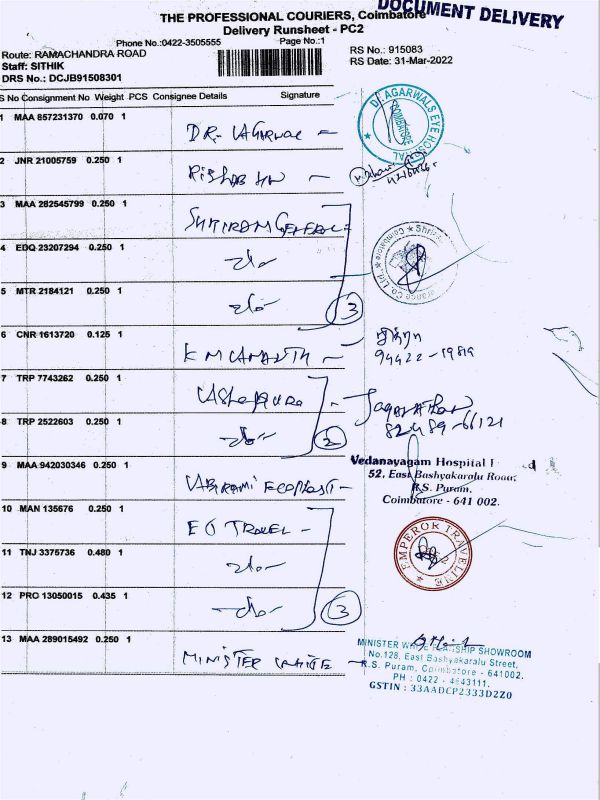 DOCUMENT DELIVERY
THE PROFESSIONAL COURIERS, Coimbatore
Delivery Runsheet - PC2
Phone No.:0422-3505555 Page No.:1
Route: RAMACHANDRA ROAD RS No.: 915083
Staff: SITHIK RS Date: 31-Mar-2022
DRS No.: DCJB91508301
S No Consignment No Weight PCS Consignee Details Signature
1 MAA 857231370 0.070 1
DR. AGARWAL
DR AGARWALS EYE HOSPITAL
COIMBATORE
2 JNR 21005759 0.250 1
3 MAA 282545799 0.250 1
SHRIRAM GENERAL
4 EDQ 23207294 0.250 1
do
5 MTR 2184121 0.250 1
do
3
6 CNR 1613720 0.125 1
94422-1989
7 TRP 7743262 0.250 1
8 TRP 2522603 0.250 1
do
2
82489-66121
9 MAA 942030346 0.250 1
Vedanayagam Hospital
52, East Bashyakaralu Road,
R.S. Puram,
Coimbatore - 641 002.
10 MAN 135676 0.250 1
TRAVEL
EMPEROR TRAVELINE
11 TNJ 3375736 0.480 1
do
12 PRO 13050015 0.435 1
do
3
13 MAA 289015492 0.250 1
MINISTER WHITE
MINISTER WHITE FLAGSHIP SHOWROOM
No.128, East Bashyakaralu Street,
R.S. Puram, Coimbatore - 641002.
PH : 0422 - 4643111.
GSTIN : 33AADCP2333D2Z0